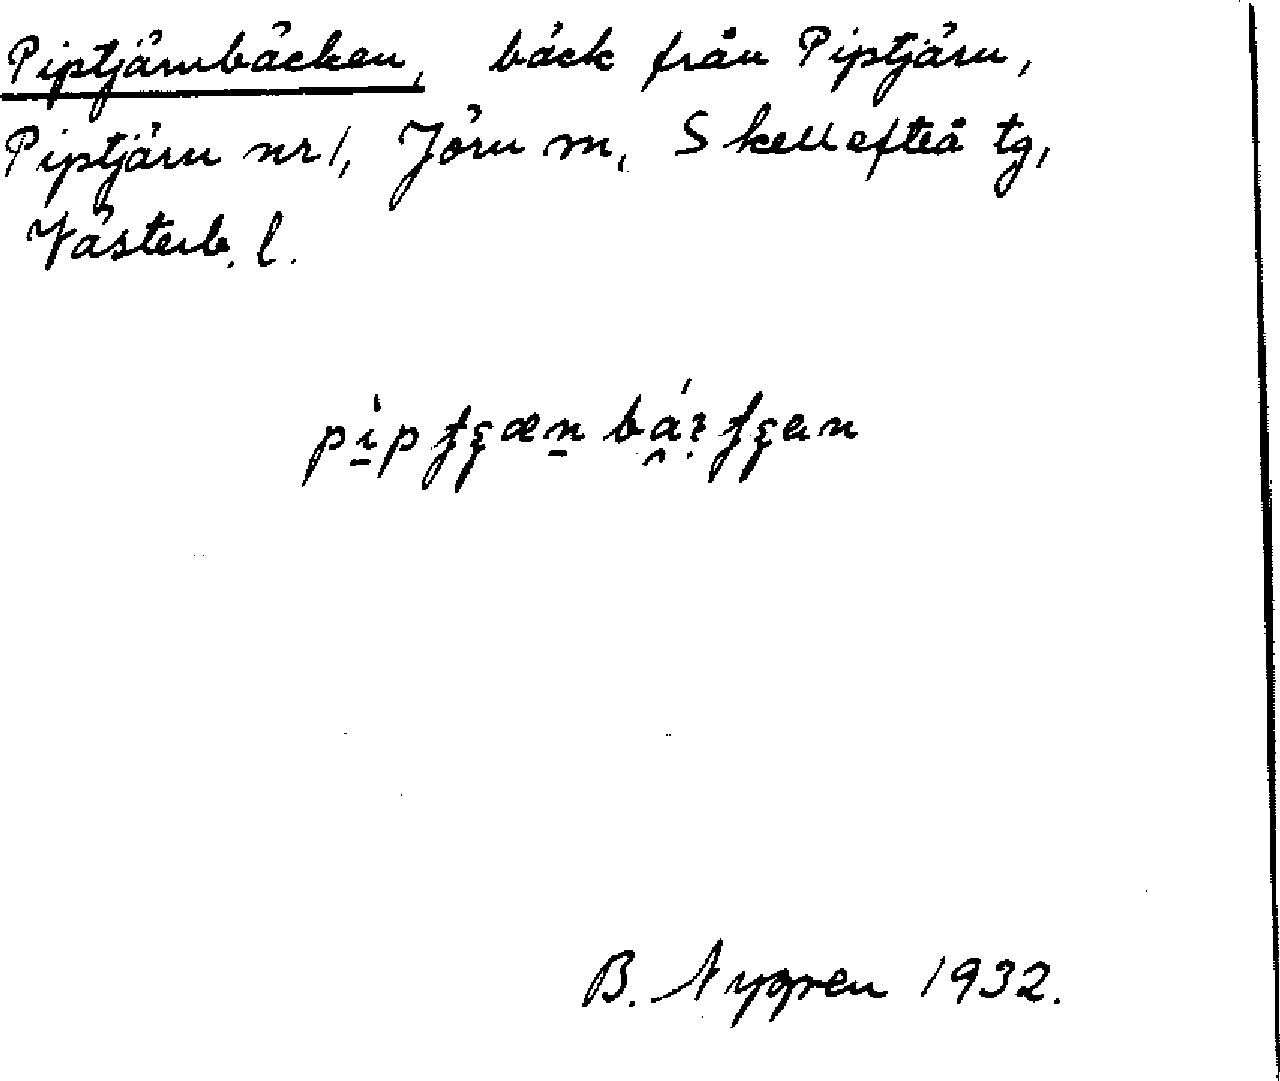 Piptjärnbäcken, bäck från Piptjärn,
Piptjärn nr 1, Jörn m, Skellefteå tg,
Västerb. l.
B. Nygren 1932.